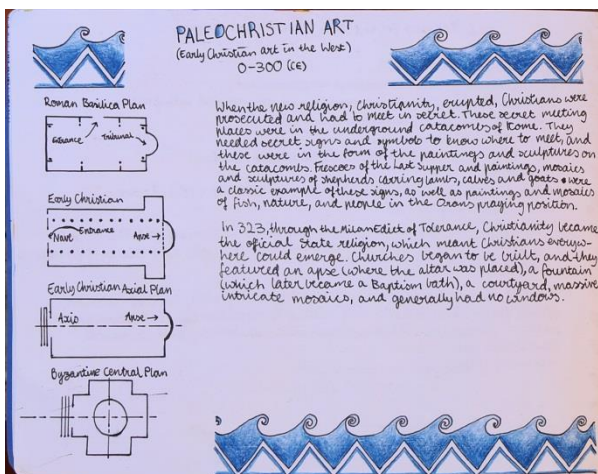 PALEOCHRISTIAN ART
(Early Christian art in the West)
0-300 (CE)
Roman Basilica Plan
Entrance
Tribunal
Early Christian
Entrance
Nave
Apse →
Early Christian Axial Plan
Axis
Apse →
Byzantine Central Plan
When the new religion, Christianity, erupted, Christians were
prosecuted and had to meet in secret. These secret meeting
places were in the underground catacombs of Rome. They
needed secret signs and symbols to know where to meet, and
these were in the form of the paintings and sculptures on
the catacombs. Frescoes of the Last Supper and paintings, mosaics
and sculptures of shepherds carring lambs, calves and goats were
a classic example of these signs, as well as paintings and mosaics
of fish, nature, and people in the Orans praying position.
In 323, through the Milan Edict of Tolerance, Christianity became
the official State religion, which meant Christians everyw-
here could emerge. Churches began to be built, and they
featured an apse (where the altar was placed), a fountain
(which later became a Baptism bath), a courtyard, massive
intricate mosaics, and generally had no windows.